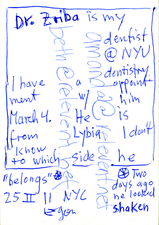 Dr. Zriba is my
dentist
@ NYU
dentistry
I have a appoint-
ment w/ him
March 4. He is
from Lybia I don't
know
to which side he
"belongs" Two
days ago
25 II 11 NYC he looked
shaken